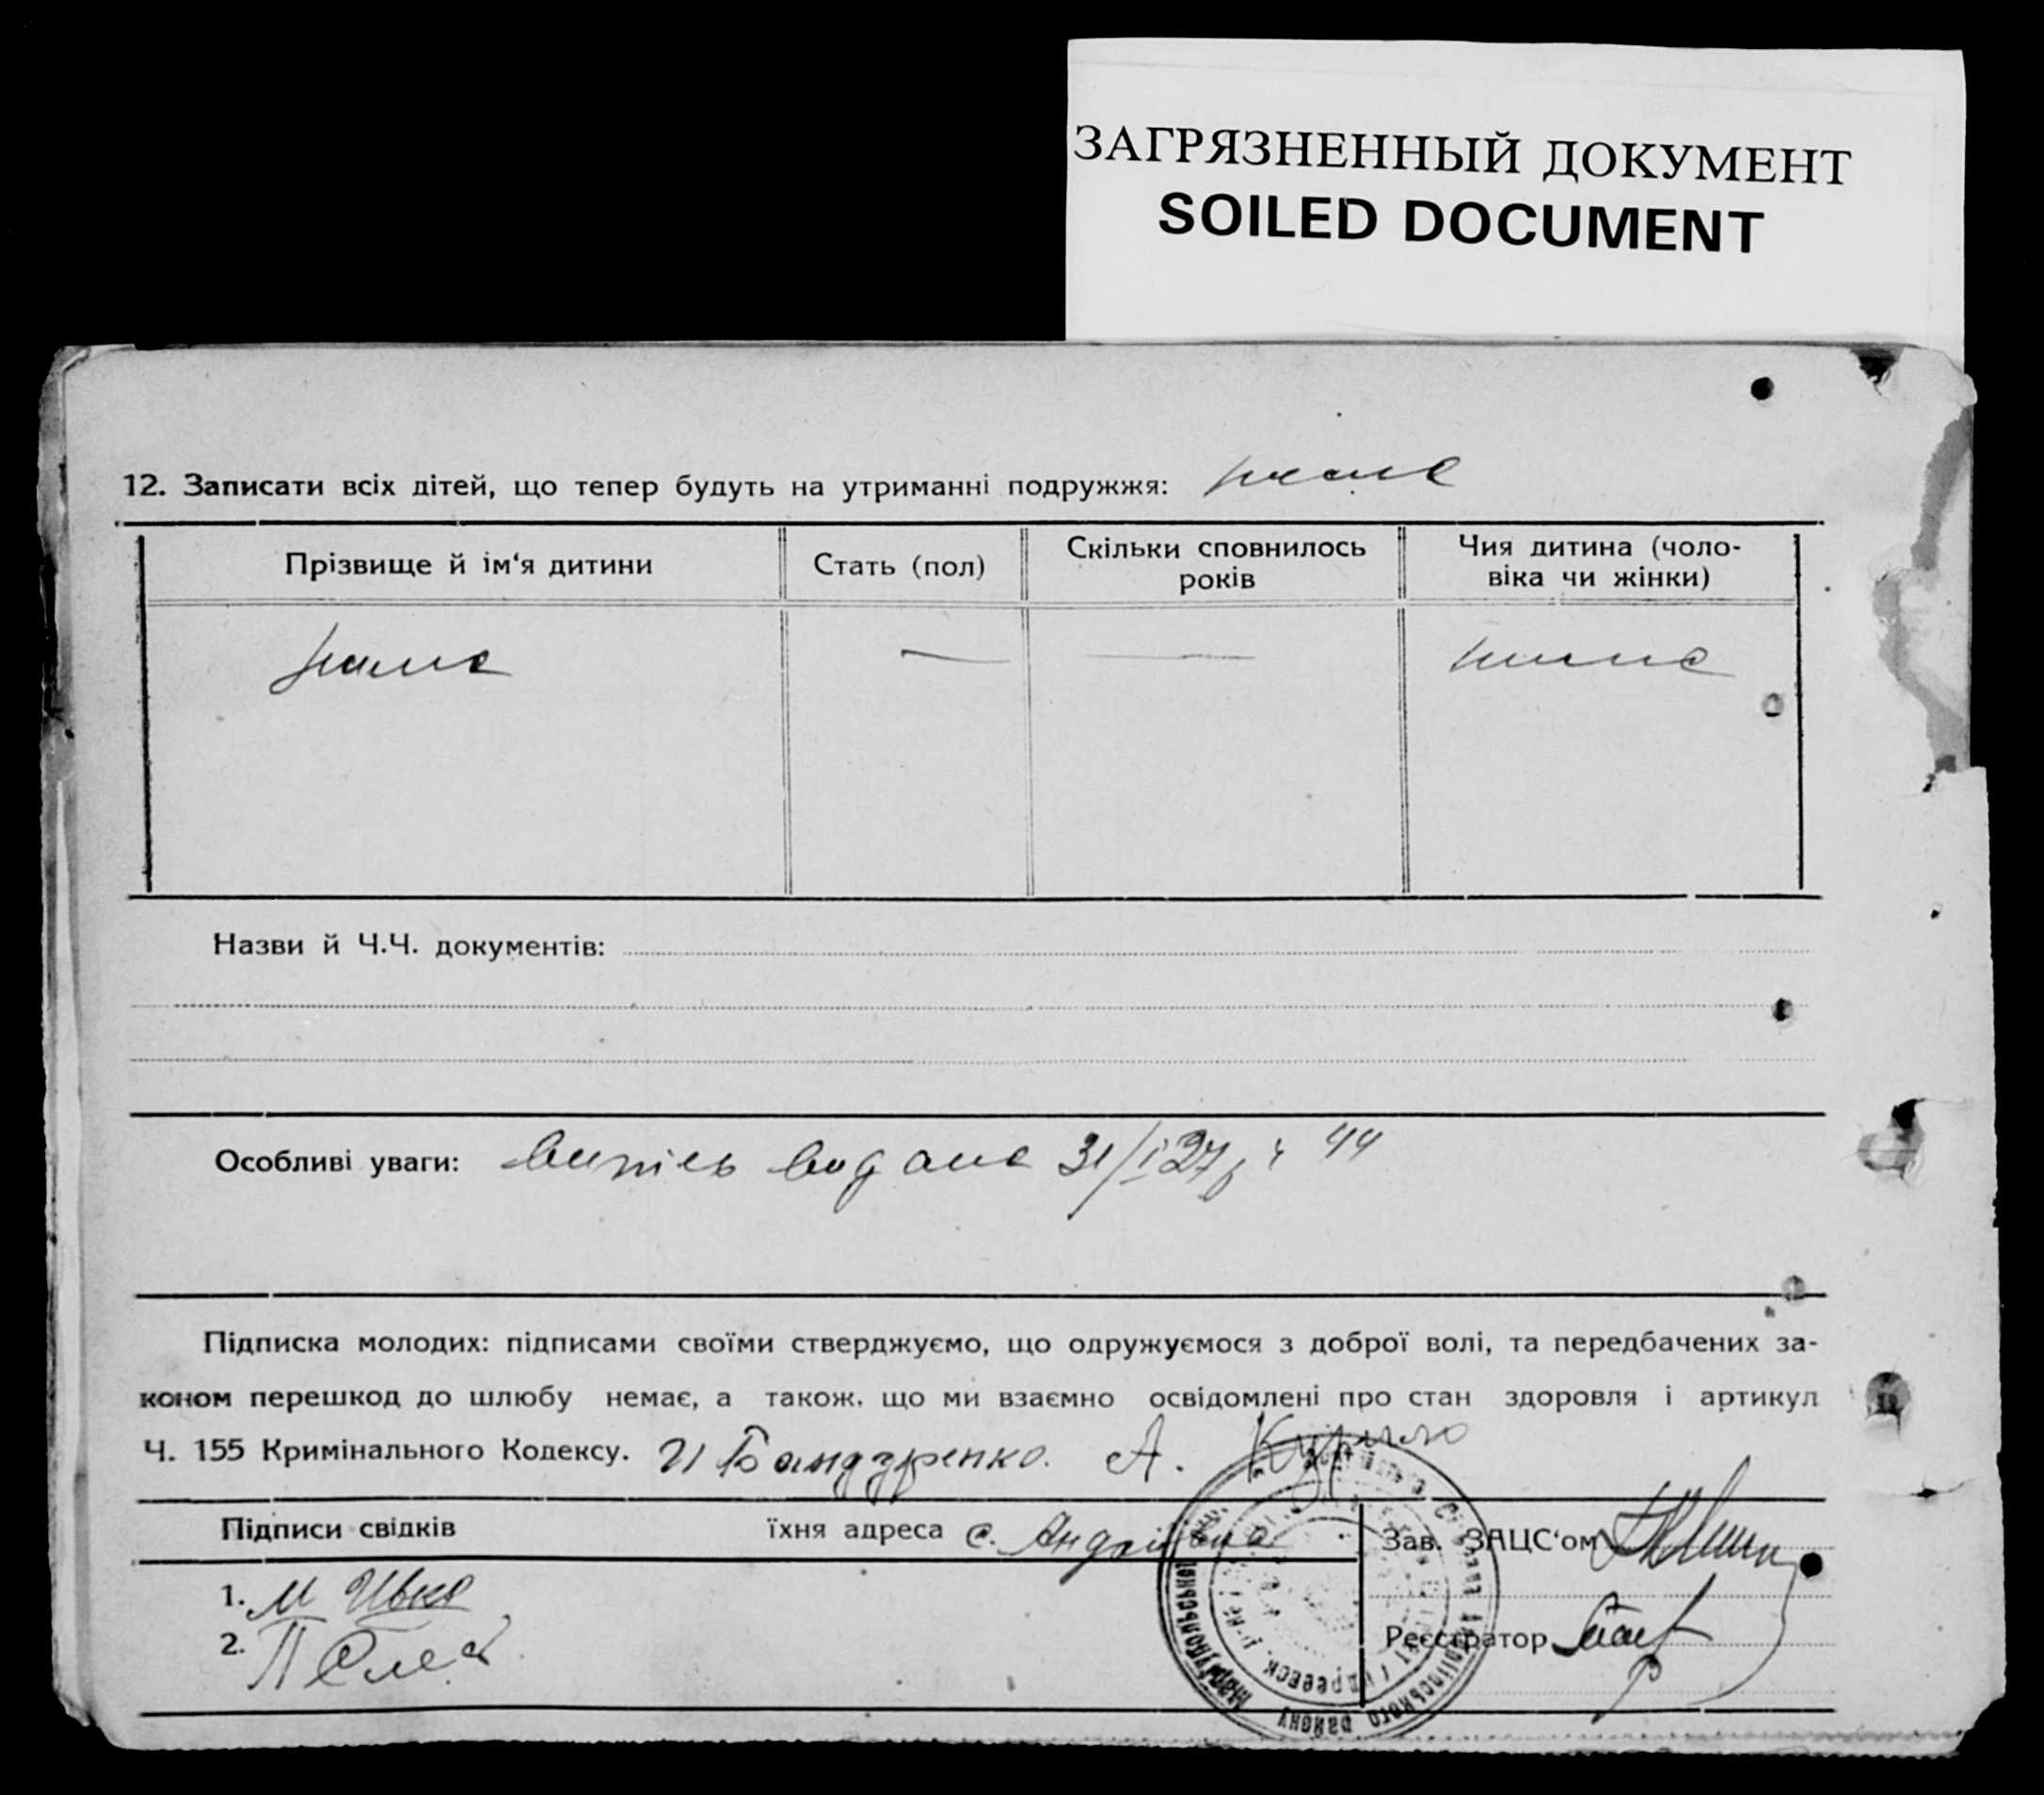 ЗАГРЯЗНЕННЫЙ ДОКУМЕНТ
SOILED DOCUMENT
12. Записати всіх дітей, що тепер будуть на утриманні подружжя: немає
Прізвище й ім‘я дитини
Стать (пол)
Скільки сповнилось
років
Чия дитина (чоло-
віка чи жінки)
немає — — немає
Назви й Ч.Ч. документів:
Особливі уваги: витяг видана 31/I 27р ч 44
Підписка молодих: підписами своїми стверджуємо, що одружуємося з доброї волі, та передбачених за-
коном перешкод до шлюбу немає, а також, що ми взаємно освідомлені про стан здоровля і артикул
Ч. 155 Кримінального Кодексу. И Бандуренко. А. Курило
Підписи свідків їхня адреса с. Андріївка Зав. ЗАЦС‘ом
1. М Ивко
2. П
Реєстратор
Маріупольської
району